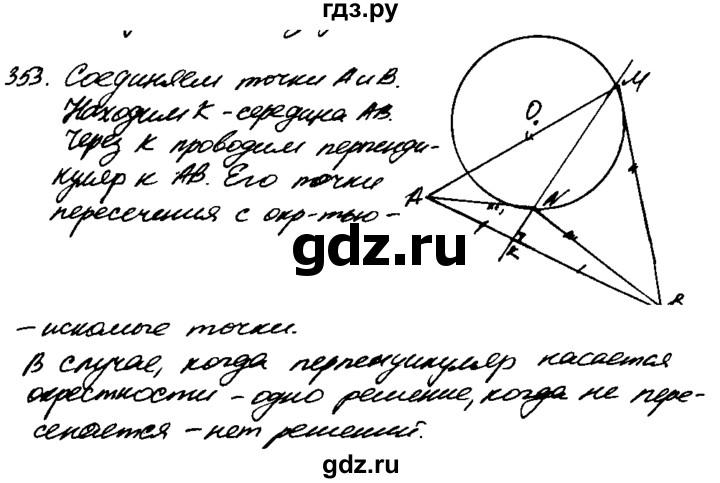 гдз.ру
353. Соединяем точки А и В.
Находим К - середина АВ.
Через К проводим перпенди-
куляр к АВ. Его точки
пересечения с окр-тью -
M
O
A
N
K
B
gdz.ru
- искомые точки.
В случае, когда перпендикуляр касается
окрестности - одно решение, когда не пере-
секается - нет решений.
gdz.ru